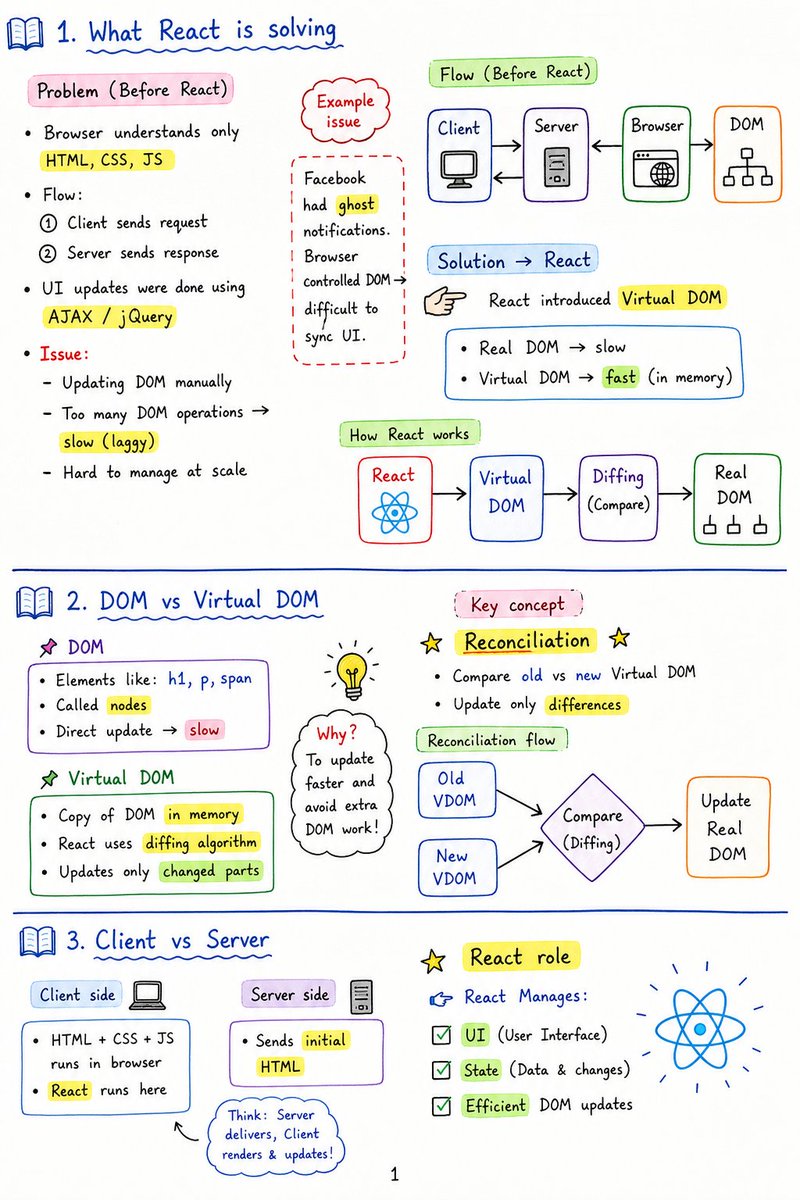 1. What React is solving
Problem (Before React)
• Browser understands only
HTML, CSS, JS
• Flow:
① Client sends request
② Server sends response
• UI updates were done using
AJAX / jQuery
• Issue:
– Updating DOM manually
– Too many DOM operations →
slow (laggy)
– Hard to manage at scale
Example
issue
Facebook
had ghost
notifications.
Browser
controlled DOM→
difficult to
sync UI.
Flow (Before React)
Client
Server
Browser
DOM
Solution → React
React introduced Virtual DOM
• Real DOM → slow
• Virtual DOM → fast (in memory)
How React works
React
Virtual
DOM
Diffing
(Compare)
Real
DOM
2. DOM vs Virtual DOM
DOM
• Elements like: h1, p, span
• Called nodes
• Direct update → slow
Virtual DOM
• Copy of DOM in memory
• React uses diffing algorithm
• Updates only changed parts
Why?
To update
faster and
avoid extra
DOM work!
Key concept
Reconciliation
• Compare old vs new Virtual DOM
• Update only differences
Reconciliation flow
Old
VDOM
New
VDOM
Compare
(Diffing)
Update
Real
DOM
3. Client vs Server
Client side
• HTML + CSS + JS
runs in browser
• React runs here
Server side
• Sends initial
HTML
Think: Server
delivers, Client
renders & updates!
React role
React Manages:
UI (User Interface)
State (Data & changes)
Efficient DOM updates
1